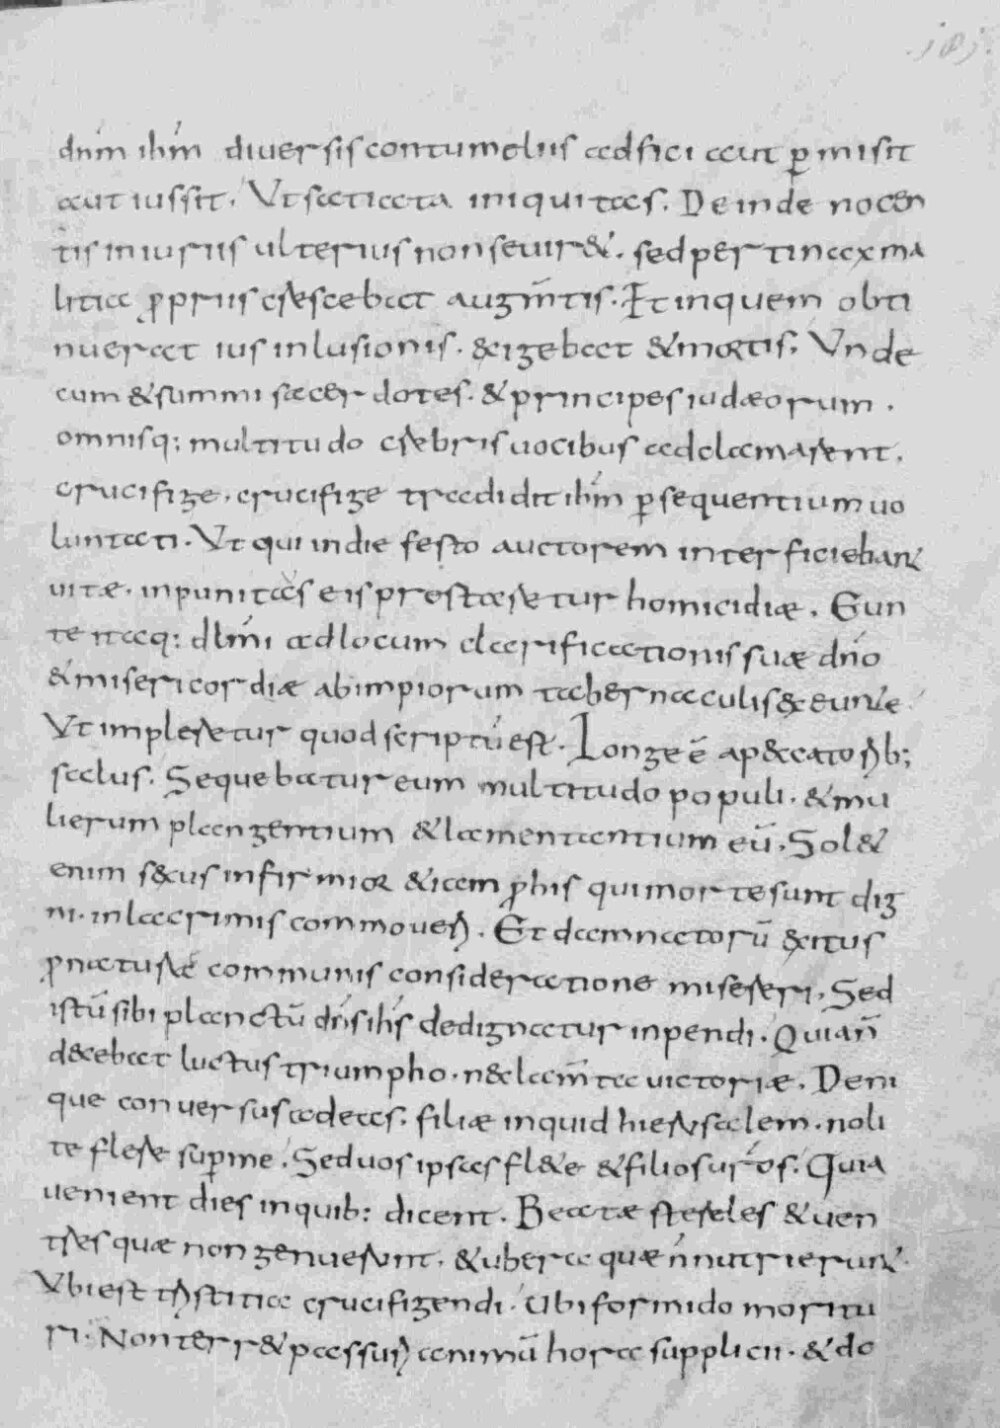 dnm ihm diversis contumeliis adfici aut pmisit
aut iussit. Ut satiata iniquitas. Deinde nocen
tis iniuriis ulterius non seviret. sed pertinax ma
litia propriis crescebat augmtis. Et inquem obti
nuerat ius inlusionis. exigebat & mortis. Unde
cum & summi sacerdotes. & principes iudæorum.
omnisq: multitudo crebris vocibus adclamarent.
crucifige. crucifige tradidit ihm psequentium vo
luntati. Ut qui in die festo auctorem interficiebant
vitæ. inpunitas eis prestaretur homicidiæ. Eun
te itaq: ad locum clarificationis suæ dno
& misericordiæ ab impiorum tabernaculis exeunte.
Ut impleretur quod scriptu est. Longe e a peccatorib;
salus. Sequebatur eum multitudo populi. & mu
lierum plangentium & lamentantium eu. Solet
enim sexus infirmior etiam p his qui morte sunt dig
ni. in lacrimis commoveri. Et damnatoru exitus
p naturæ communis consideratione misereri. Sed
istu sibi planctu dns ihs dedignatur inpendi. Quia n
decebat luctus triumpho. nec lamta victoriæ. Deni
que conversus ad eas. filiæ inquid hierusalem. noli
te flere sup me. Sed vos ipsas flete & filios uros. Quia
venient dies in quib: dicent. Beatæ steriles & ven
tres quæ non genuerunt. & ubera quæ n nutrierunt.
Ubi est tristitia crucifigendi. Ubi formido moritu
ri. Non terret passuri animu hora supplicii. & de